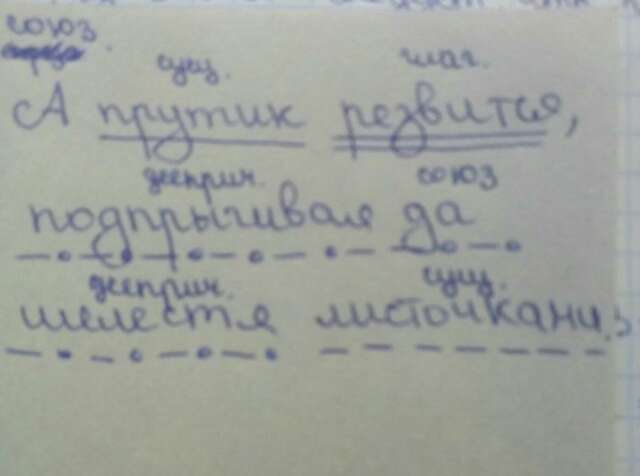 союз
сущ. глаг.
А прутик резвится,
дееприч. союз
подпрыгивая да
дееприч. сущ.
шелестя листочками.